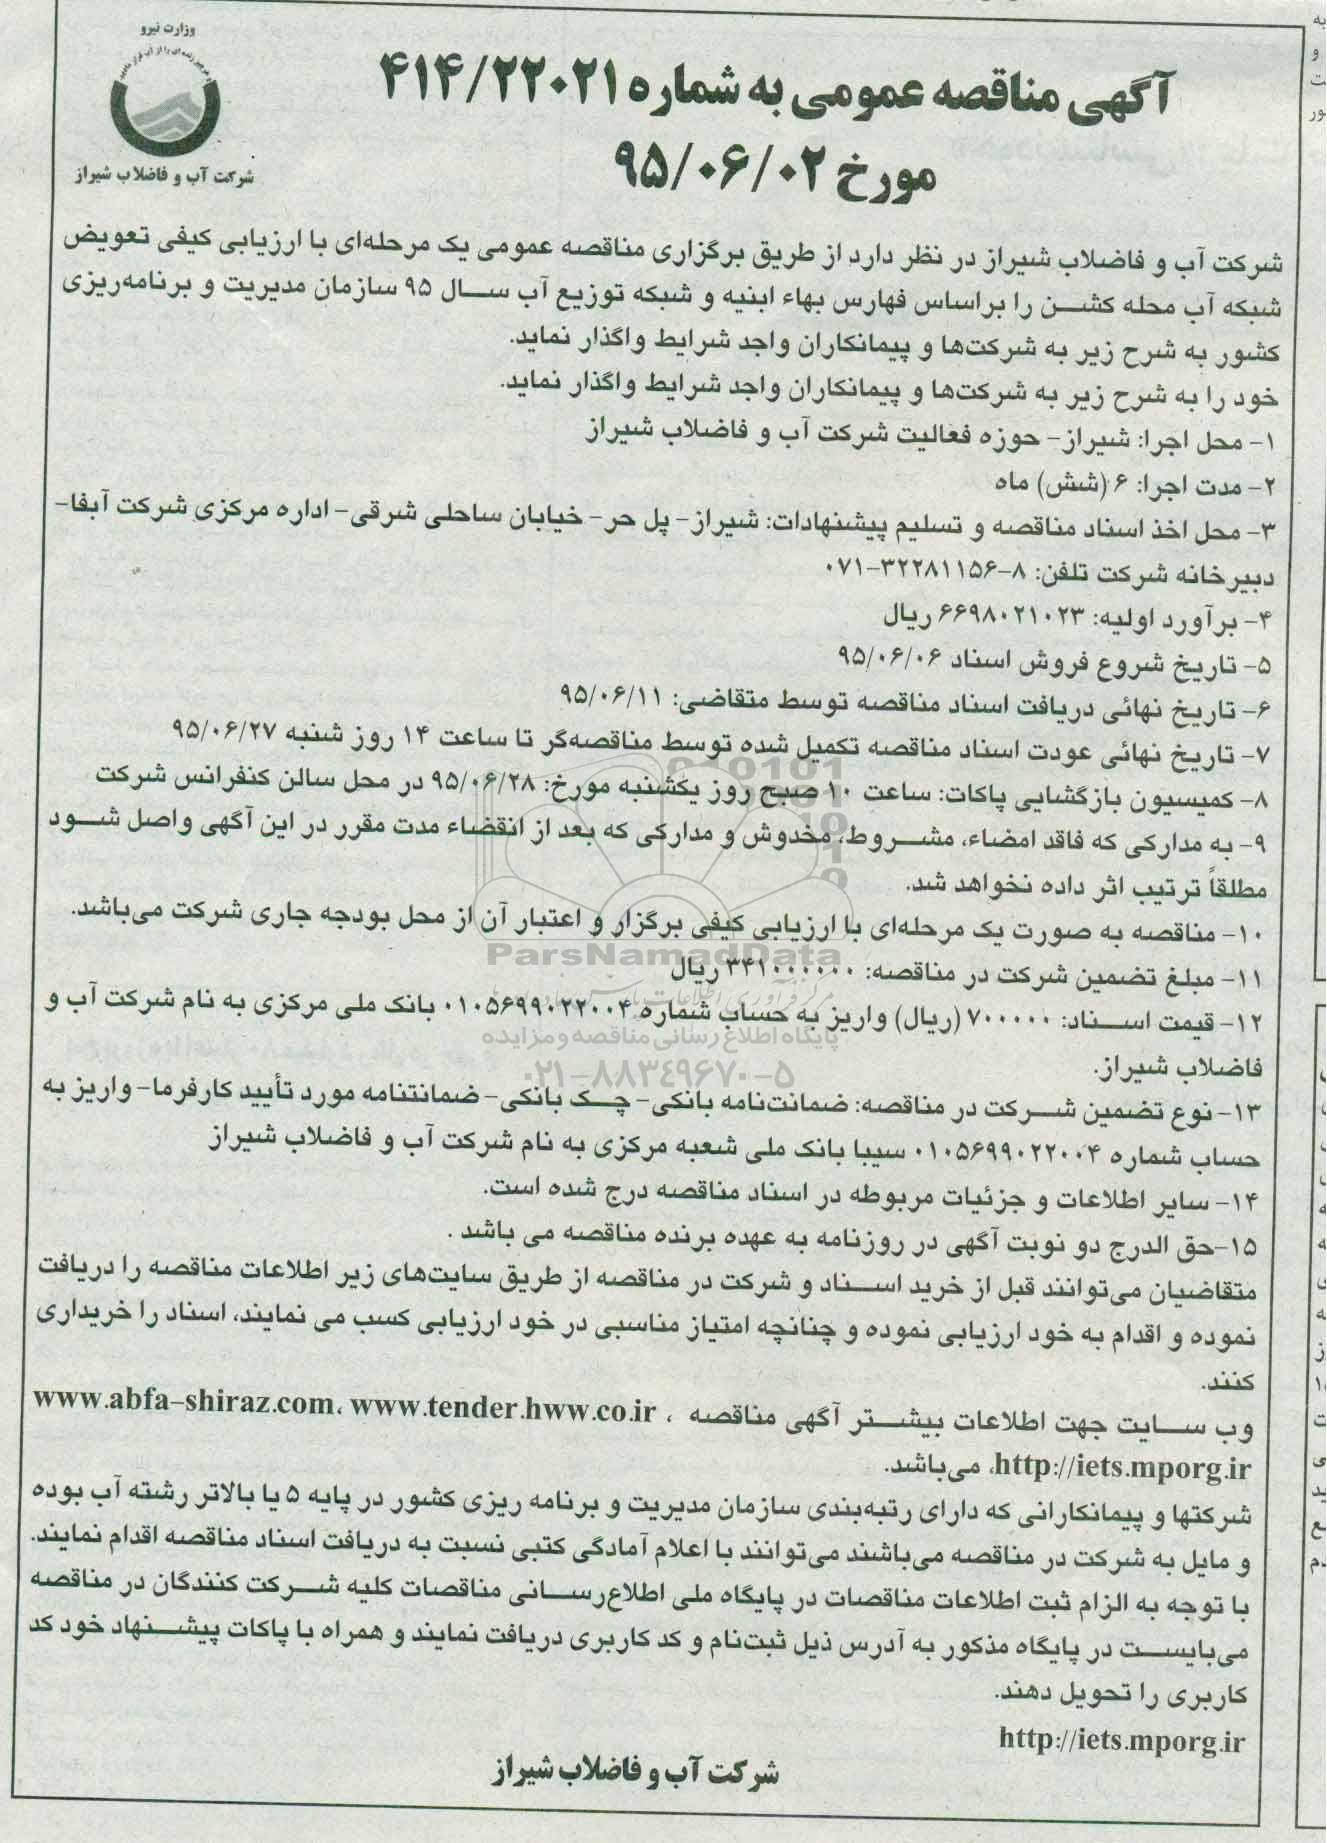 وزارت نیرو
شرکت آب و فاضلاب شیراز
آگهی مناقصه عمومی به شماره ۴۱۴/۲۲۰۲۱
مورخ ۹۵/۰۶/۰۲
شرکت آب و فاضلاب شیراز در نظر دارد از طریق برگزاری مناقصه عمومی یک مرحله‌ای با ارزیابی کیفی تعویض
شبکه آب محله کشن را براساس فهارس بهاء ابنیه و شبکه توزیع آب سال ۹۵ سازمان مدیریت و برنامه‌ریزی
کشور به شرح زیر به شرکت‌ها و پیمانکاران واجد شرایط واگذار نماید.
خود را به شرح زیر به شرکت‌ها و پیمانکاران واجد شرایط واگذار نماید.
۱- محل اجرا: شیراز- حوزه فعالیت شرکت آب و فاضلاب شیراز
۲- مدت اجرا: ۶ (شش) ماه
۳- محل اخذ اسناد مناقصه و تسلیم پیشنهادات: شیراز- پل حر- خیابان ساحلی شرقی- اداره مرکزی شرکت آبفا-
دبیرخانه شرکت تلفن: ۸-۳۲۲۸۱۱۵۶-۰۷۱
۴- برآورد اولیه: ۶۶۹۸۰۲۱۰۲۳ ریال
۵- تاریخ شروع فروش اسناد ۹۵/۰۶/۰۶
۶- تاریخ نهائی دریافت اسناد مناقصه توسط متقاضی: ۹۵/۰۶/۱۱
۷- تاریخ نهائی عودت اسناد مناقصه تکمیل شده توسط مناقصه‌گر تا ساعت ۱۴ روز شنبه ۹۵/۰۶/۲۷
۸- کمیسیون بازگشایی پاکات: ساعت ۱۰ صبح روز یکشنبه مورخ: ۹۵/۰۶/۲۸ در محل سالن کنفرانس شرکت
۹- به مدارکی که فاقد امضاء، مشروط، مخدوش و مدارکی که بعد از انقضاء مدت مقرر در این آگهی واصل شود
مطلقاً ترتیب اثر داده نخواهد شد.
۱۰- مناقصه به صورت یک مرحله‌ای با ارزیابی کیفی برگزار و اعتبار آن از محل بودجه جاری شرکت می‌باشد.
ParsNamadData
۱۱- مبلغ تضمین شرکت در مناقصه: ۳۴۱۰۰۰۰۰۰ ریال
۱۲- قیمت اسناد: ۷۰۰۰۰۰ (ریال) واریز به حساب شماره ۰۱۰۵۶۹۹۰۲۲۰۰۴ بانک ملی مرکزی به نام شرکت آب و
پایگاه اطلاع رسانی مناقصه و مزایده
فاضلاب شیراز.
۰۲۱-۸۸۳۴۹۶۷۰-۵
۱۳- نوع تضمین شرکت در مناقصه: ضمانت‌نامه بانکی- چک بانکی- ضمانتنامه مورد تأیید کارفرما- واریز به
حساب شماره ۰۱۰۵۶۹۹۰۲۲۰۰۴ سیبا بانک ملی شعبه مرکزی به نام شرکت آب و فاضلاب شیراز
۱۴- سایر اطلاعات و جزئیات مربوطه در اسناد مناقصه درج شده است.
۱۵-حق الدرج دو نوبت آگهی در روزنامه به عهده برنده مناقصه می باشد .
متقاضیان می‌توانند قبل از خرید اسناد و شرکت در مناقصه از طریق سایت‌های زیر اطلاعات مناقصه را دریافت
نموده و اقدام به خود ارزیابی نموده و چنانچه امتیاز مناسبی در خود ارزیابی کسب می نمایند، اسناد را خریداری
کنند.
وب سایت جهت اطلاعات بیشتر آگهی مناقصه ، www.abfa-shiraz.com، www.tender.hww.co.ir
http://iets.mporg.ir، می‌باشد.
شرکتها و پیمانکارانی که دارای رتبه‌بندی سازمان مدیریت و برنامه ریزی کشور در پایه ۵ یا بالاتر رشته آب بوده
و مایل به شرکت در مناقصه می‌باشند می‌توانند با اعلام آمادگی کتبی نسبت به دریافت اسناد مناقصه اقدام نمایند.
با توجه به الزام ثبت اطلاعات مناقصات در پایگاه ملی اطلاع‌رسانی مناقصات کلیه شرکت کنندگان در مناقصه
می‌بایست در پایگاه مذکور به آدرس ذیل ثبت‌نام و کد کاربری دریافت نمایند و همراه با پاکات پیشنهاد خود کد
کاربری را تحویل دهند.
http://iets.mporg.ir
شرکت آب و فاضلاب شیراز